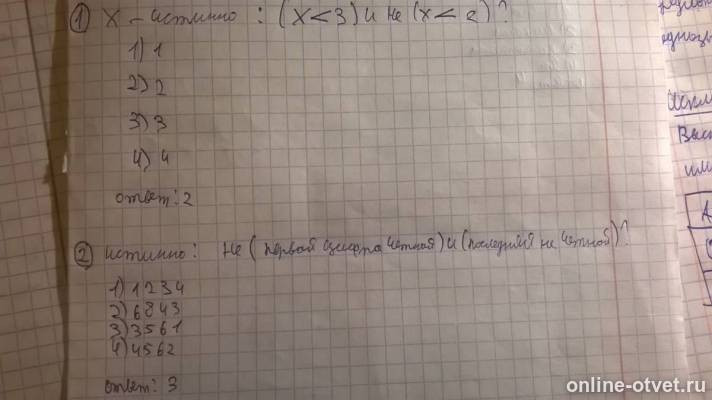 1) X - истинно : (X<3) и не (X<2)?
1) 1
2) 2
3) 3
4) 4
ответ: 2
2) истинно: Не (первая цифра четная) и (последняя не четной)?
1) 1234
2) 6843
3) 3561
4) 4562
ответ: 3
online-otvet.ru